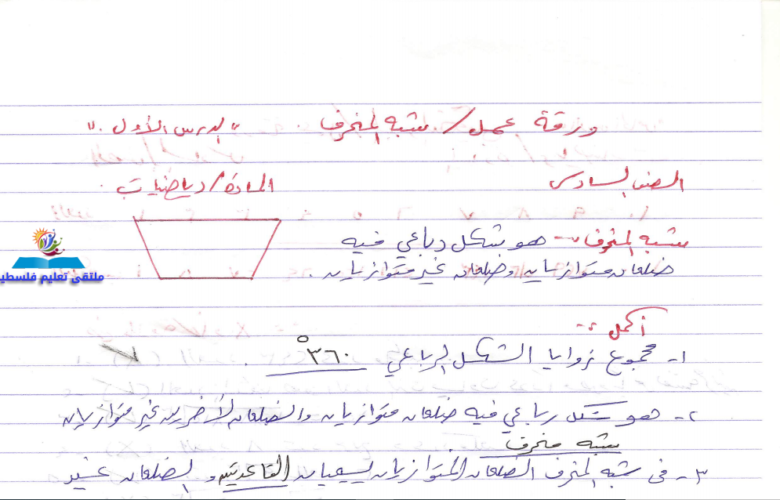 ورقة عمل / شبه المنحرف . "الدرس الأول".
الصف السادس المادة / رياضيات .
شبه المنحرف :- هو شكل رباعي فيه
ضلعان متوازيان وضلعان غير متوازيان .
ملتقى تعليم فلسطين
أكمل :-
١- مجموع زوايا الشكل الرباعي ٣٦٠° .
٢- هو شكل رباعي فيه ضلعان متوازيان والضلعان الأخريان غير متوازيان
شبه منحرف .
٣- في شبه المنحرف الضلعان المتوازيان يسميان القاعدتين والضلعان غير